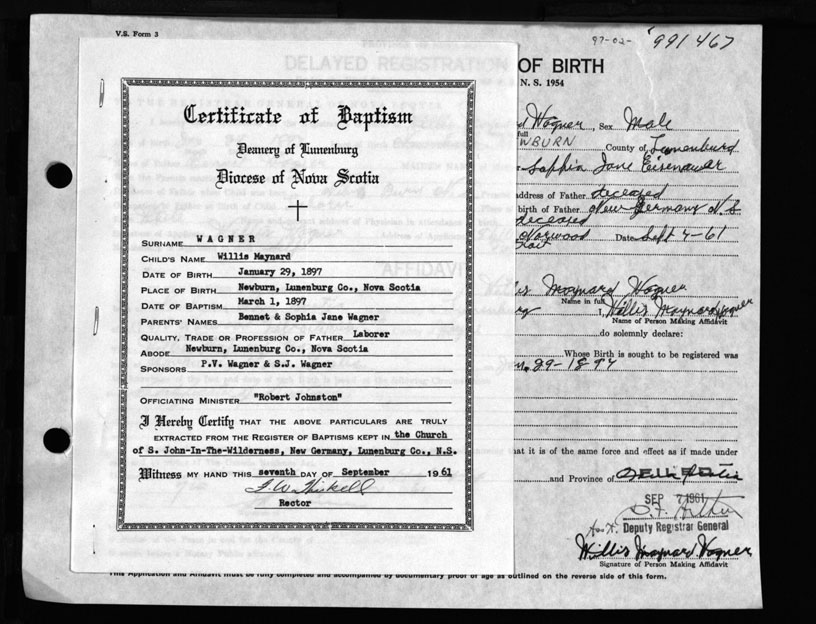 V.S. Form 3
97-02-
991467
DELAYED REGISTRATION OF BIRTH
N. S. 1954
Certificate of Baptism
Deanery of Lunenburg
Diocese of Nova Scotia
SURNAME WAGNER
CHILD'S NAME Willis Maynard
DATE OF BIRTH January 29, 1897
PLACE OF BIRTH Newburn, Lunenburg Co., Nova Scotia
DATE OF BAPTISM March 1, 1897
PARENTS' NAMES Bennet & Sophia Jane Wagner
QUALITY, TRADE OR PROFESSION OF FATHER Laborer
ABODE Newburn, Lunenburg Co., Nova Scotia
SPONSORS P.V. Wagner & S.J. Wagner
OFFICIATING MINISTER "Robert Johnston"
I Hereby Certify THAT THE ABOVE PARTICULARS ARE TRULY
EXTRACTED FROM THE REGISTER OF BAPTISMS KEPT IN the Church
of S. John-In-The-Wilderness, New Germany, Lunenburg Co., N.S.
Witness MY HAND THIS seventh DAY OF September 1961
Rector
d Wagner, Sex Male
full
WBURN County of Lunenburg
Sophia Jane Eisenauer
address of Father deceased
birth of Father New Germany N.S.
deceased
Norwood Date Sept 4-61
AFFIDAVIT
is Maynard Wagner
Name in full
I, Willis Maynard Wagner
Name of Person Making Affidavit
do solemnly declare:
Whose Birth is sought to be registered was
n. 29-1897
hat it is of the same force and effect as if made under
and Province of
SEP 7 1961
Deputy Registrar General
Willis Maynard Wagner
Signature of Person Making Affidavit
This Application and Affidavit must be fully completed and accompanied by documentary proof of age as outlined on the reverse side of this form.